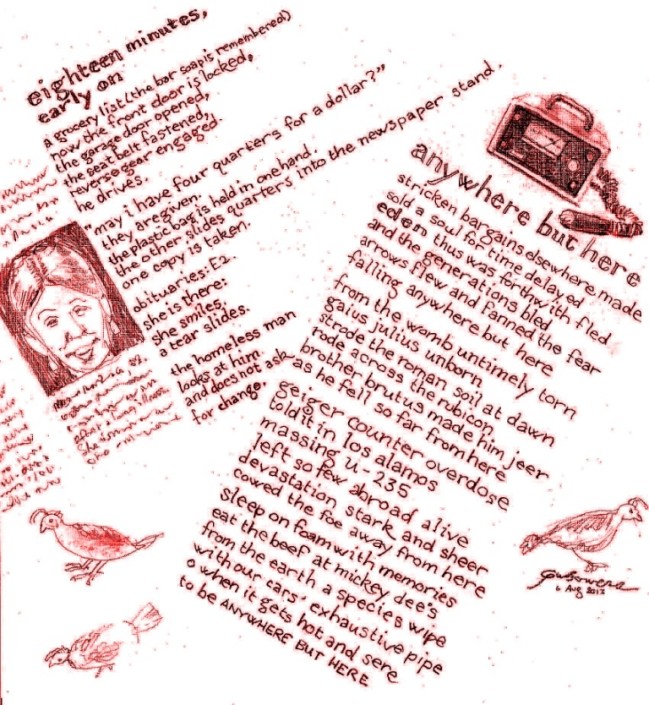 eighteen minutes,
early on
a grocery list (the bar soap is remembered)
now the front door is locked,
the garage door opened,
the seat belt fastened,
reverse gear engaged.
he drives.
"may i have four quarters for a dollar?"
they are given.
the plastic bag is held in one hand.
the other slides quarters into the newspaper stand.
one copy is taken.
obituaries: E2.
she is there:
she smiles.
a tear slides.
the homeless man
looks at him
and does not ask
for change.
anywhere but here
stricken bargains elsewhere made
sold a soul for time delayed
eden thus was forthwith fled
and the generations bled
arrows flew and fanned the fear
falling anywhere but here
from the womb untimely torn
gaius julius unborn
strode the roman soil at dawn
rode across the rubicon
brother brutus made him jeer
as he fell so far from here
geiger counter overdose
told it in los alamos
massing u-235
left so few abroad alive
devastation stark and sheer
cowed the foe away from here
sleep on foam with memories
eat the beef at mickey dee's
from the earth a species wipe
with our cars' exhaustive pipe
o when it gets hot and sere
to be ANYWHERE BUT HERE
6 Aug 2013